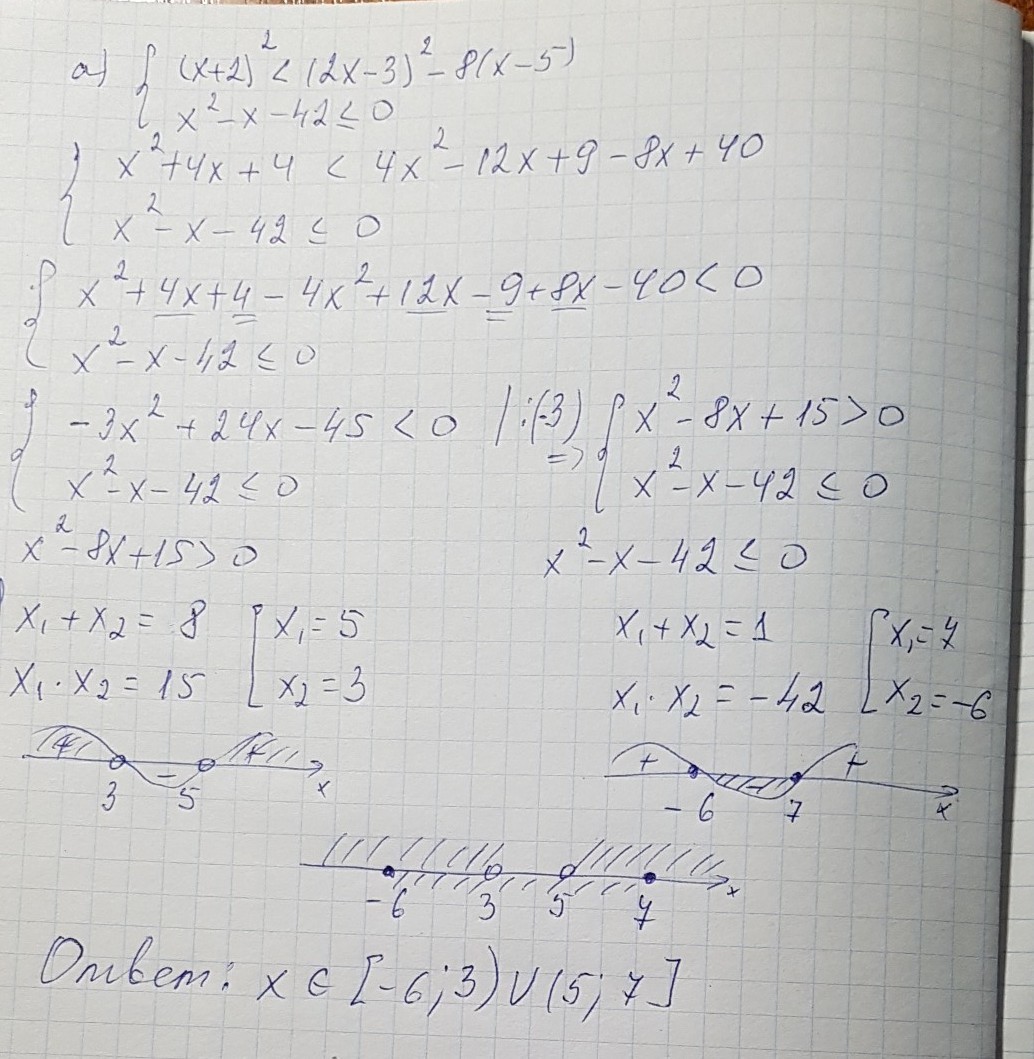 а) { (x+2)² < (2x-3)² - 8(x-5)
{ x² - x - 42 ≤ 0
{ x² + 4x + 4 < 4x² - 12x + 9 - 8x + 40
{ x² - x - 42 ≤ 0
{ x² + 4x + 4 - 4x² + 12x - 9 + 8x - 40 < 0
{ x² - x - 42 ≤ 0
{ -3x² + 24x - 45 < 0 |:(-3) => { x² - 8x + 15 > 0
{ x² - x - 42 ≤ 0 { x² - x - 42 ≤ 0
x² - 8x + 15 > 0 x² - x - 42 ≤ 0
x₁ + x₂ = 8 [ x₁ = 5 x₁ + x₂ = 1 [ x₁ = 7
x₁ · x₂ = 15 [ x₂ = 3 x₁ · x₂ = -42 [ x₂ = -6
+ - + x + - + x
3 5 -6 7
x
-6 3 5 7
Ответ: x ∈ [-6; 3) ∪ (5; 7]